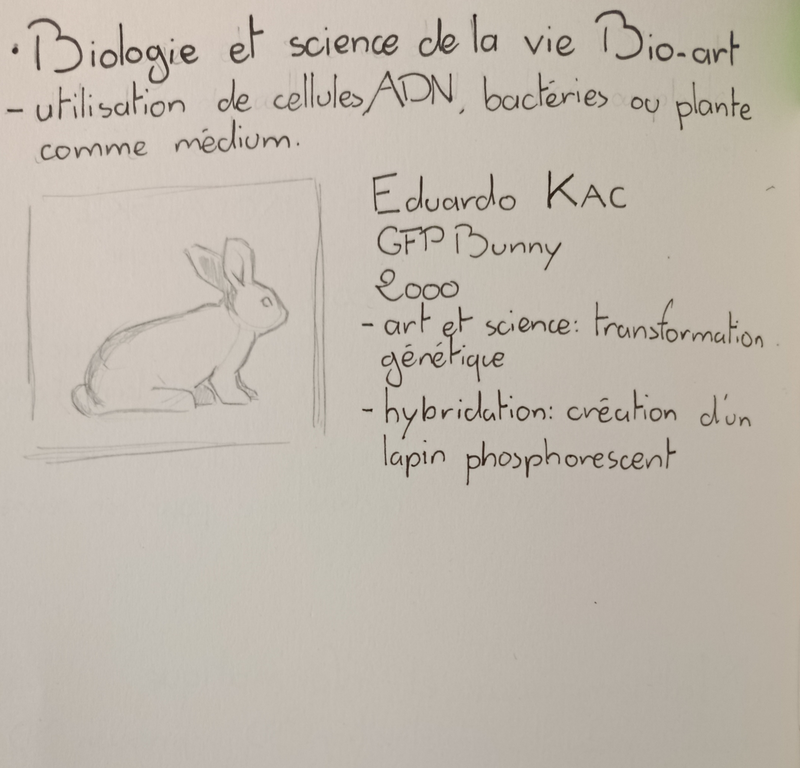 • Biologie et science de la vie Bio-art
- utilisation de cellules, ADN, bactéries ou plante
comme médium.
Eduardo KAC
GFP Bunny
2000
- art et science: transformation
génétique
- hybridation: création d'un
lapin phosphorescent